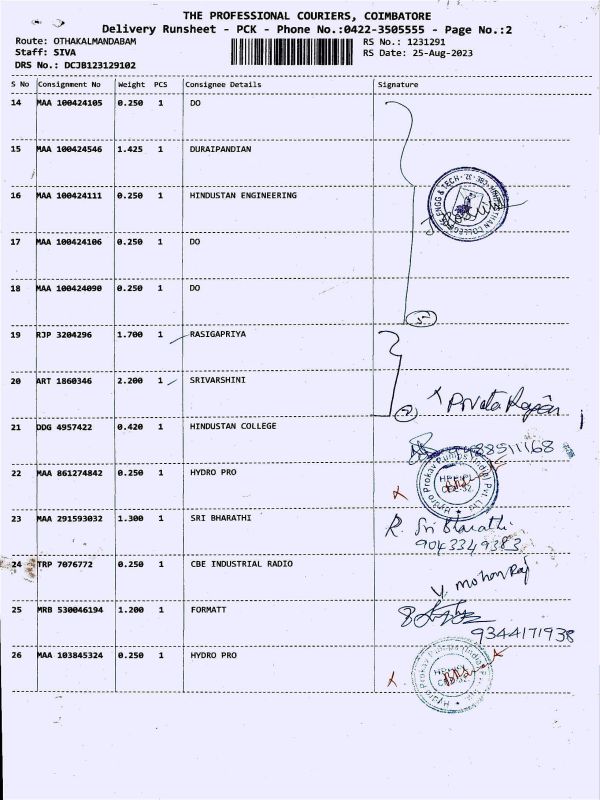 THE PROFESSIONAL COURIERS, COIMBATORE
Delivery Runsheet - PCK - Phone No.:0422-3505555 - Page No.:2
Route: OTHAKALMANDABAM
RS No.: 1231291
Staff: SIVA
RS Date: 25-Aug-2023
DRS No.: DCJB123129102
S No Consignment No Weight PCS Consignee Details Signature
14 MAA 100424105 0.250 1 DO
15 MAA 100424546 1.425 1 DURAIPANDIAN
16 MAA 100424111 0.250 1 HINDUSTAN ENGINEERING
17 MAA 100424106 0.250 1 DO
18 MAA 100424090 0.250 1 DO
19 RJP 3204296 1.700 1 RASIGAPRIYA
20 ART 1860346 2.200 1 SRIVARSHINI
21 DDG 4957422 0.420 1 HINDUSTAN COLLEGE
22 MAA 861274842 0.250 1 HYDRO PRO
Hydro Prokav Pumps (India) Pvt. Ltd.
23 MAA 291593032 1.300 1 SRI BHARATHI R. Sri Bharathi
9043349383
24 TRP 7076772 0.250 1 CBE INDUSTRIAL RADIO V. mohan Raj
25 MRB 530046194 1.200 1 FORMATT
9344171938
26 MAA 103845324 0.250 1 HYDRO PRO
Hydro Prokav Pumps (India) Pvt. Ltd.